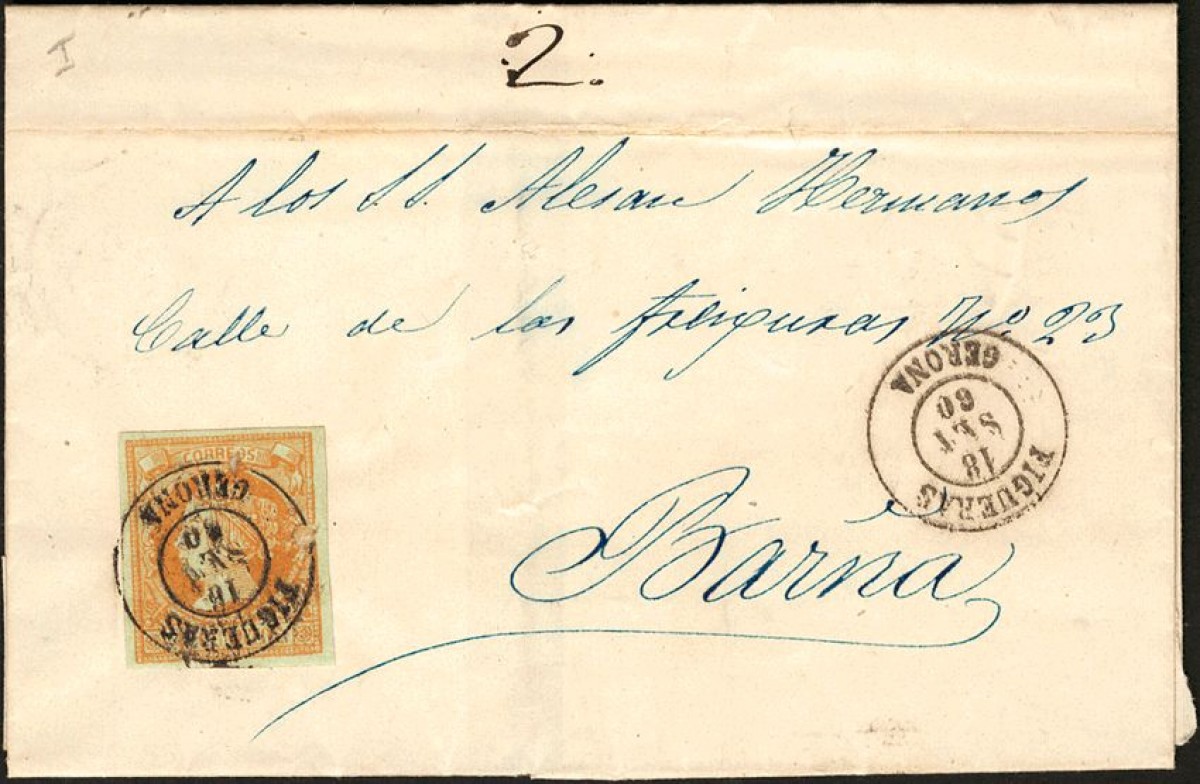 I
2.
A los S.S. Alesan Hermanos
Calle de las Nº 23
Barna
CORREOS
FIGUERAS
18
60
GERONA
FIGUERAS
18
SET
60
GERONA